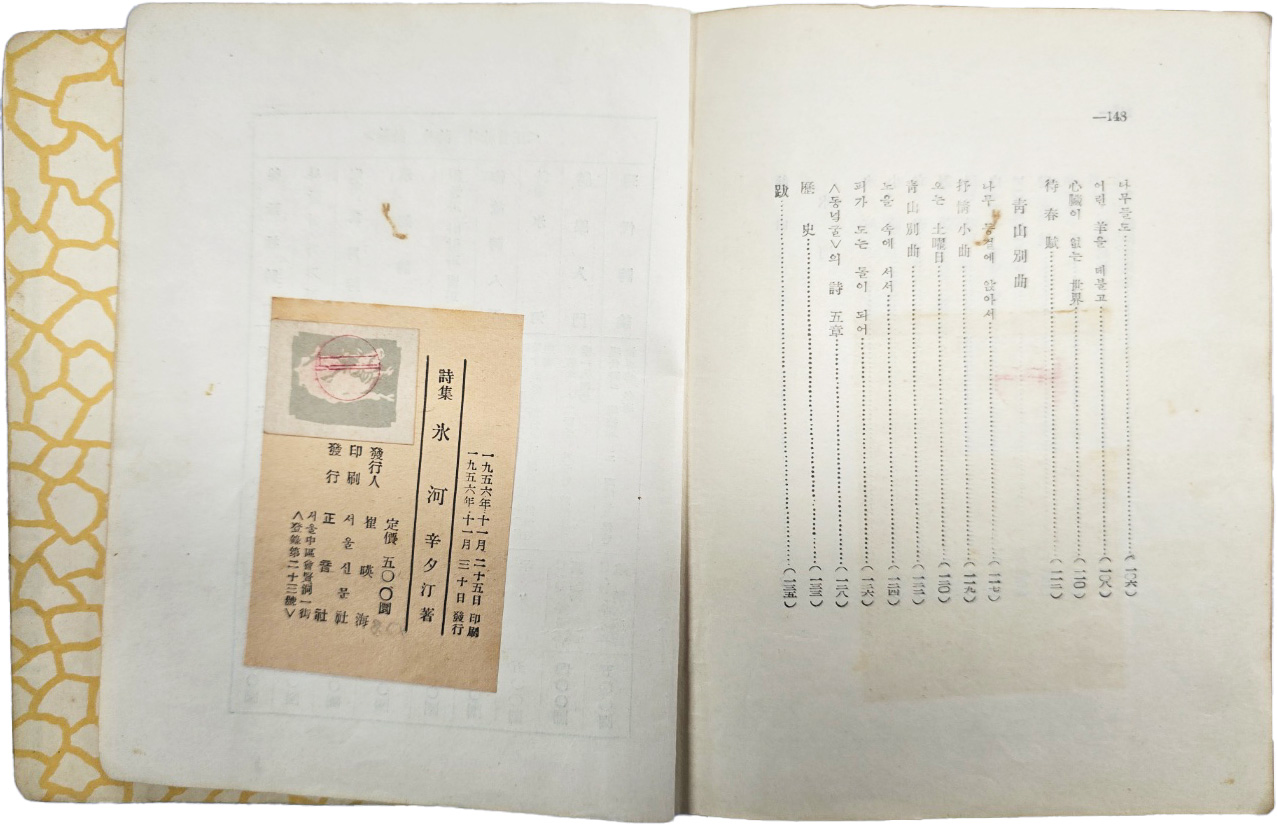 —148
나무들도……(一〇六)
어린 羊을 데불고……(一〇八)
心臟이 없는 世界……(一一〇)
待春賦……(一一二)
靑山別曲
나무 등걸에 앉아서……(一一七)
抒情小曲……(一一九)
오는 土曜日……(一二〇)
靑山別曲……(一二二)
노을 속에 서서……(一二四)
피가 도는 돌이 되어……(一二六)
<동넘굴>의 詩 五章……(一二八)
歷史……(一三三)
跋……(一三五)
一九五六年十一月 二十五日 印刷
一九五六年十一月 三十日 發行
詩集 氷河 辛夕汀著
定價 五〇〇圜
發行人 崔暎海
印刷 서울신문社
發行 正音社
서울中區會賢洞一街
<登錄第二十三號>